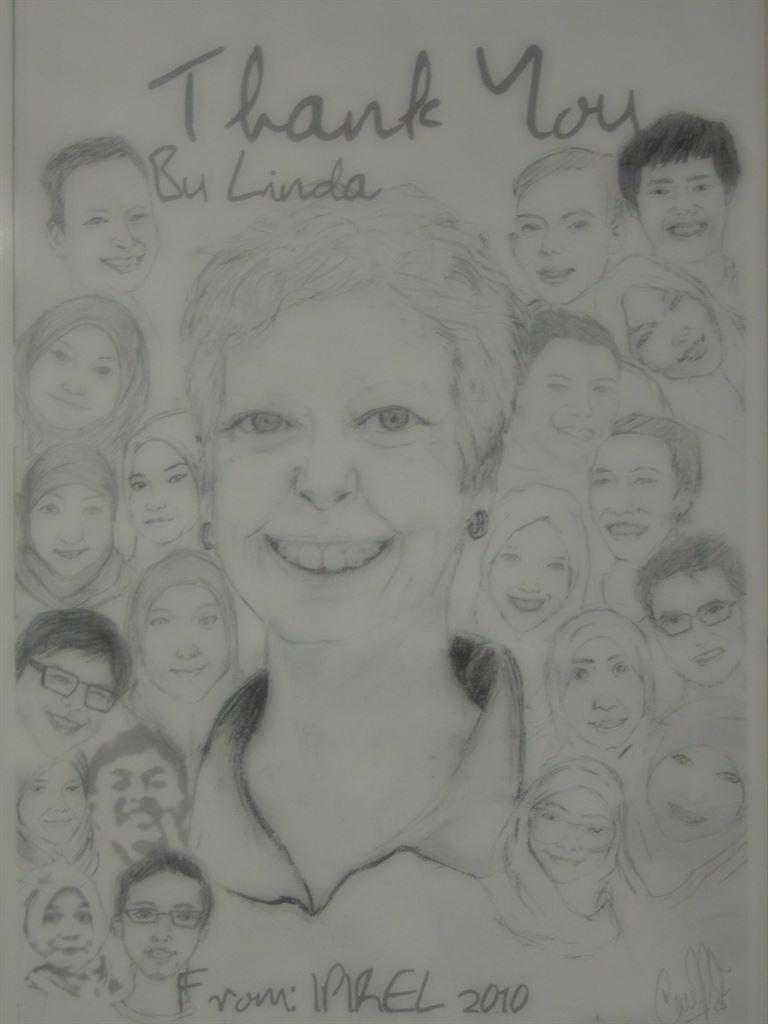 Thank You
Bu Linda
From: IPIREL 2010